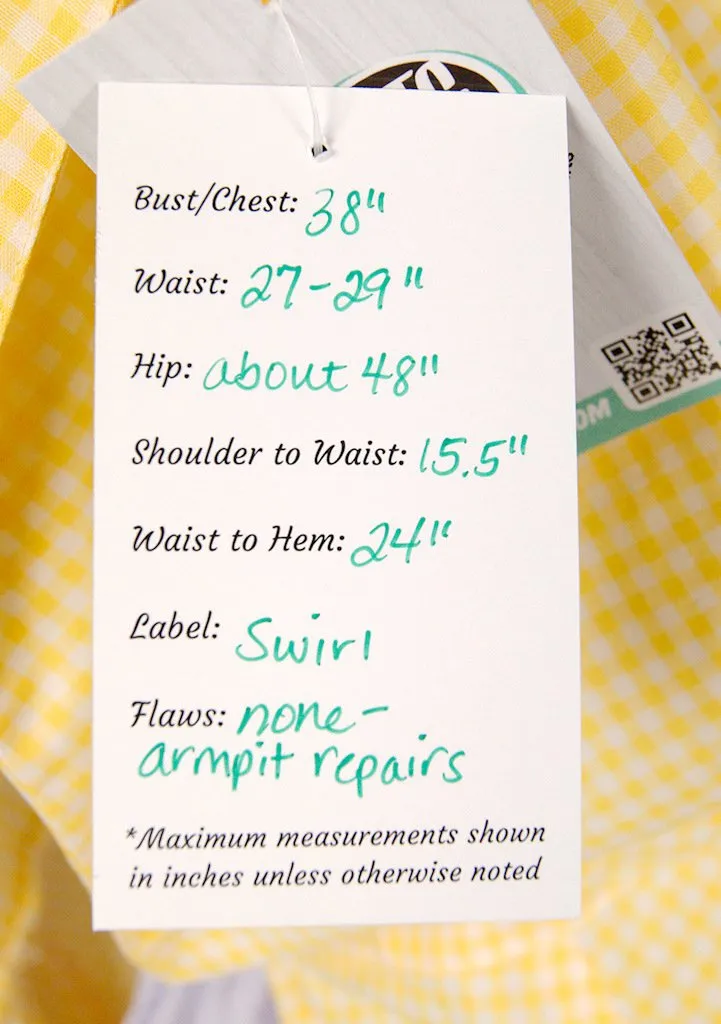 Bust/Chest: 38"
Waist: 27-29"
Hip: about 48"
Shoulder to Waist: 15.5"
Waist to Hem: 24"
Label: Swirl
Flaws: none-
armpit repairs
*Maximum measurements shown
in inches unless otherwise noted
OM